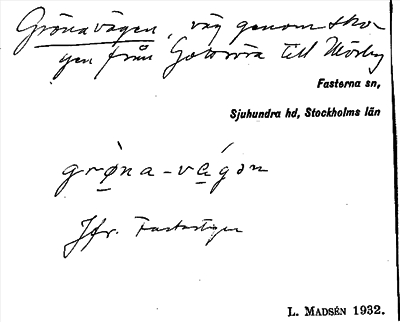 Gröna vägen, väg genom sko-
gen från Gottröra till Mörby
Fasterna sn,
Sjuhundra hd, Stockholms län
grø̀na-vágən
Jfr.
L. MADSÉN 1932.